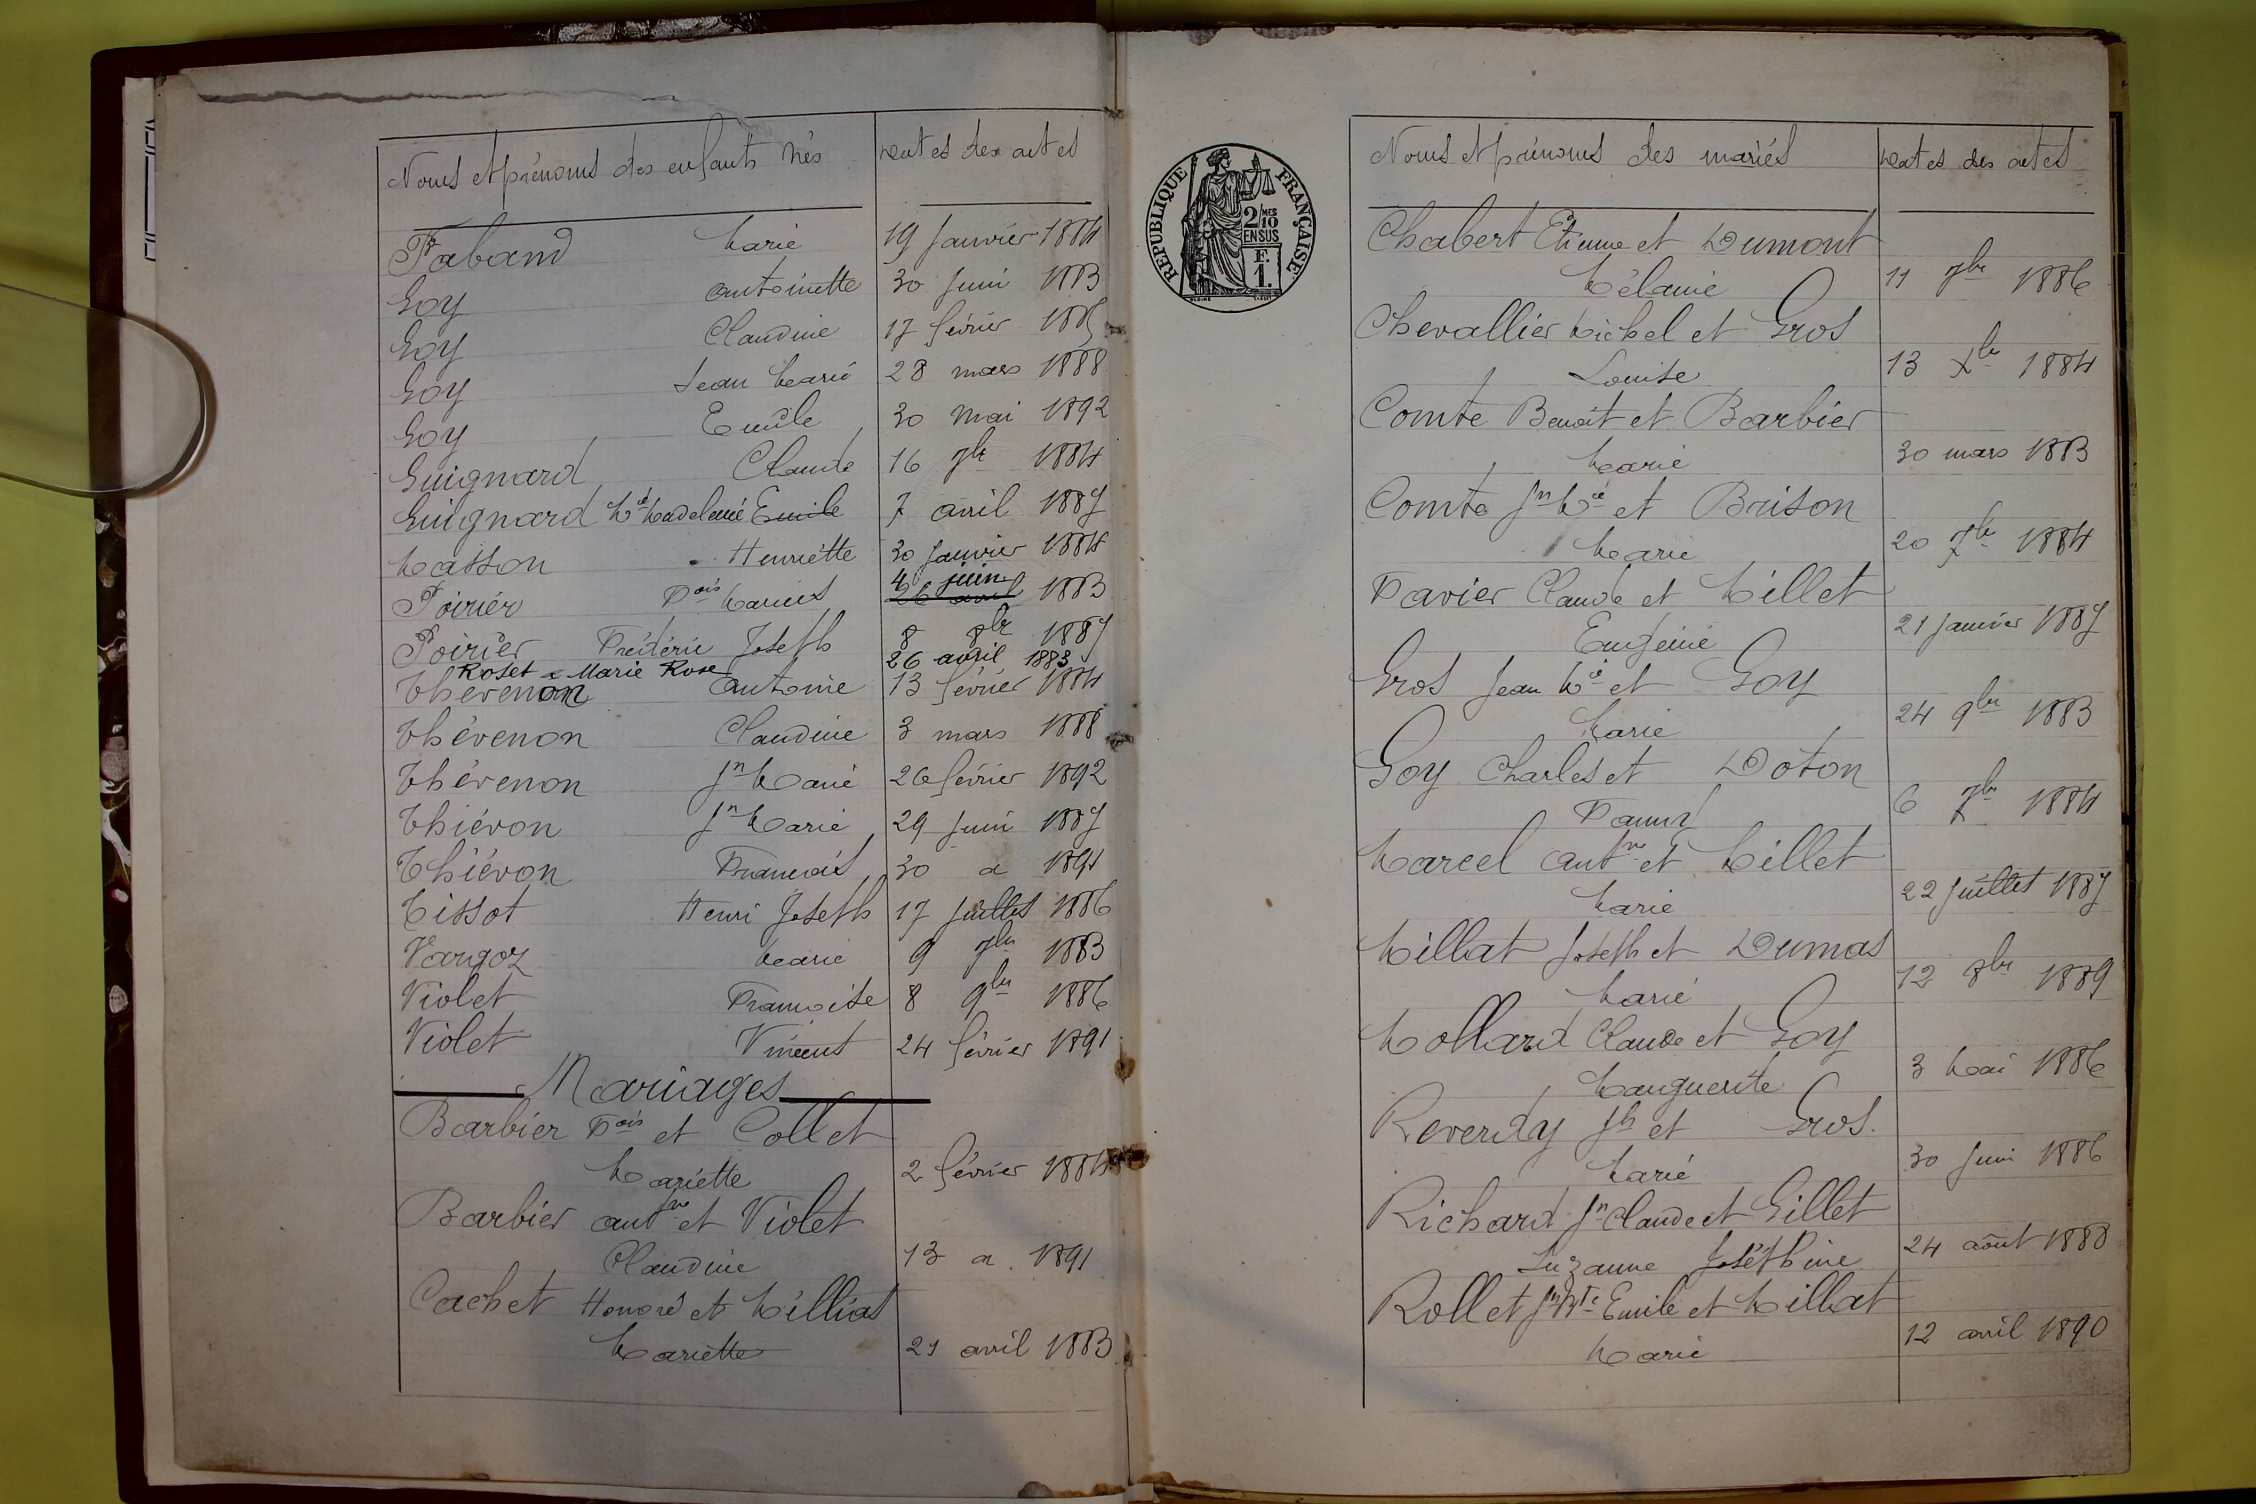 Noms et prénoms des enfants nés Dates des actes
Faband Marie 19 Janvier 1884
Goy Antoinette 30 Juin 1883
Goy Claudine 17 février 1885
Goy Jean Marie 28 mars 1888
Goy Emile 30 mai 1892
Guignard Claude 16 7bre 1884
Guignard Mie Madeleine Emile 7 avril 1887
Masson Henriette 30 Janvier 1884
4 juin
Poirier Fois Marius 26 avril 1883
Poirier Frédéric Joseph 8 8bre 1887
Roset Marie Rose 26 avril 1883
Thévenon Antoine 13 février 1884
Thévenon Claudine 3 mars 1888
Thévenon Jn Marie 26 février 1892
Thiévon Jn Marie 29 Juin 1887
Thiévon François 30 a 1891
Tissot Henri Joseph 17 Juillet 1886
Vargoz Marie 9 7bre 1883
Violet Françoise 8 9bre 1886
Violet Vincent 24 février 1891
Mariages
Barbier Fois et Collet
Mariette 2 février 1884
Barbier Antne et Violet
Claudine 13 a 1891
Cachet Honoré et Milliat
Mariette 21 avril 1883
RÉPUBLIQUE FRANÇAISE
2/MES
10
EN SUS
F.
1.
Noms et prénoms des mariés Dates des actes
Chabert Etienne et Dumont
Mélanie 11 7bre 1886
Chevallier Michel et Gros
Louise 13 Xbre 1884
Comte Benoît et Barbier
Marie 30 mars 1883
Comte Jn Mie et Brison
Marie 20 7bre 1884
Favier Claude et Millet
Eugénie 21 Janvier 1887
Gros Jean Mie et Goy
Marie 24 9bre 1883
Goy Charles et Doton
Fanny 6 7bre 1884
Marcel Antne et Millet
Marie 22 Juillet 1887
Millat Joseph et Dumas
Marie 12 8bre 1889
Mollard Claude et Goy
Marguerite 3 Mai 1886
Reverdy Jh et Gros
Marie 30 Juin 1886
Richard Jn Claude et Gillet
Suzanne Joséphine 24 août 1888
Rollet Jn Bte Emile et Millat
Marie 12 avril 1890